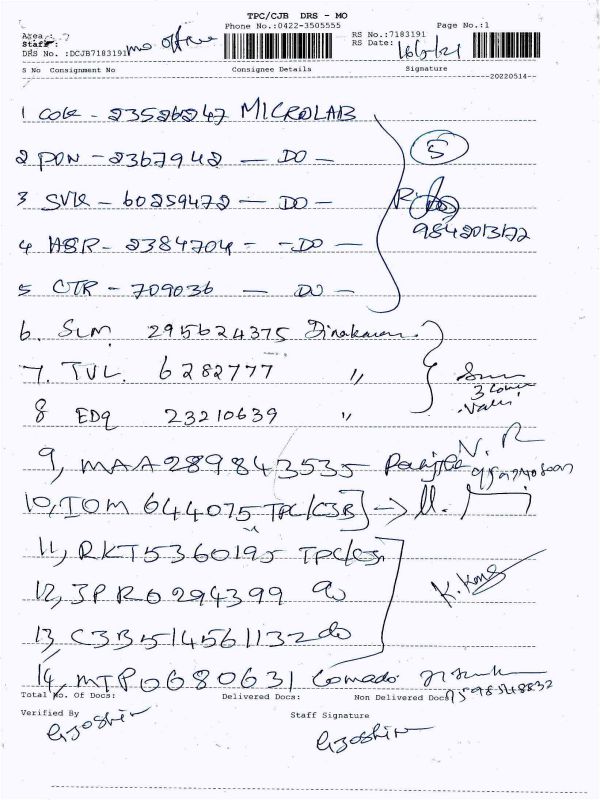 TPC/CJB DRS - MO
Phone No.:0422-3505555 Page No.:1
Area :
Staff : mo office
RS No.:7183191
RS Date:
DRS No.:DCJB7183191
S No Consignment No Consignee Details Signature
20220514
1 COK - 23526247 MICROLAB
2 PON - 2367942 - DO -
3 SVK - 60259472 - DO -
4 HSR - 2384704 - - DO -
5 CTR - 709036 - DO -
5
9842013172
6. SLM. 295624375 Dinakaran
7. TVL. 6282777 "
8 EDQ 23210639 "
3 Cover
9, MAA289843535
N. R
10, IOM 644075 TPC/CJB] ->
11, RKT5360195 TPC/CJB
12, JPR0294399 do
13, CJB514561132 do
14, MTP0680631
9598548832
Total No. Of Docs: Delivered Docs: Non Delivered Docs:
Verified By Staff Signature